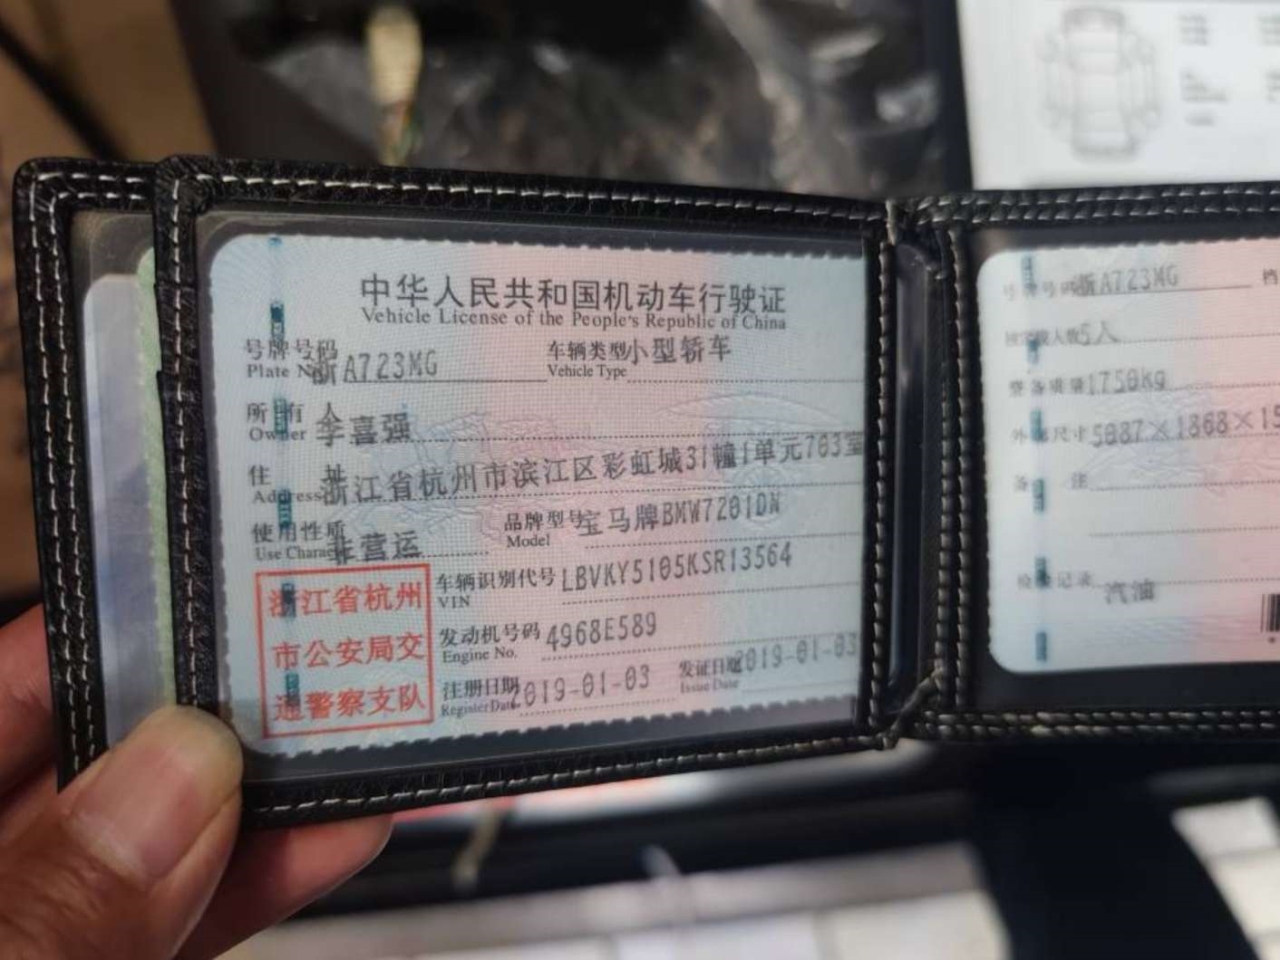 中华人民共和国机动车行驶证
Vehicle License of the People's Republic of China
号牌号码 浙A723MG 车辆类型 小型轿车
Plate No. Vehicle Type
所有人 李喜强
Owner
住址 浙江省杭州市滨江区彩虹城31幢1单元703室
Address
使用性质 非营运 品牌型号 宝马牌BMW7201DN
Use Character Model
浙江省杭州
市公安局交
通警察支队
车辆识别代号 LBVKY5105KSR13564
VIN
发动机号码 4968E589
Engine No.
注册日期 2019-01-03 发证日期 2019-01-03
Register Date Issue Date
号牌号码 浙A723MG 档
核定载人数 5人
整备质量 1750kg
外廓尺寸 5087×1868×15
备注
检验记录 汽油